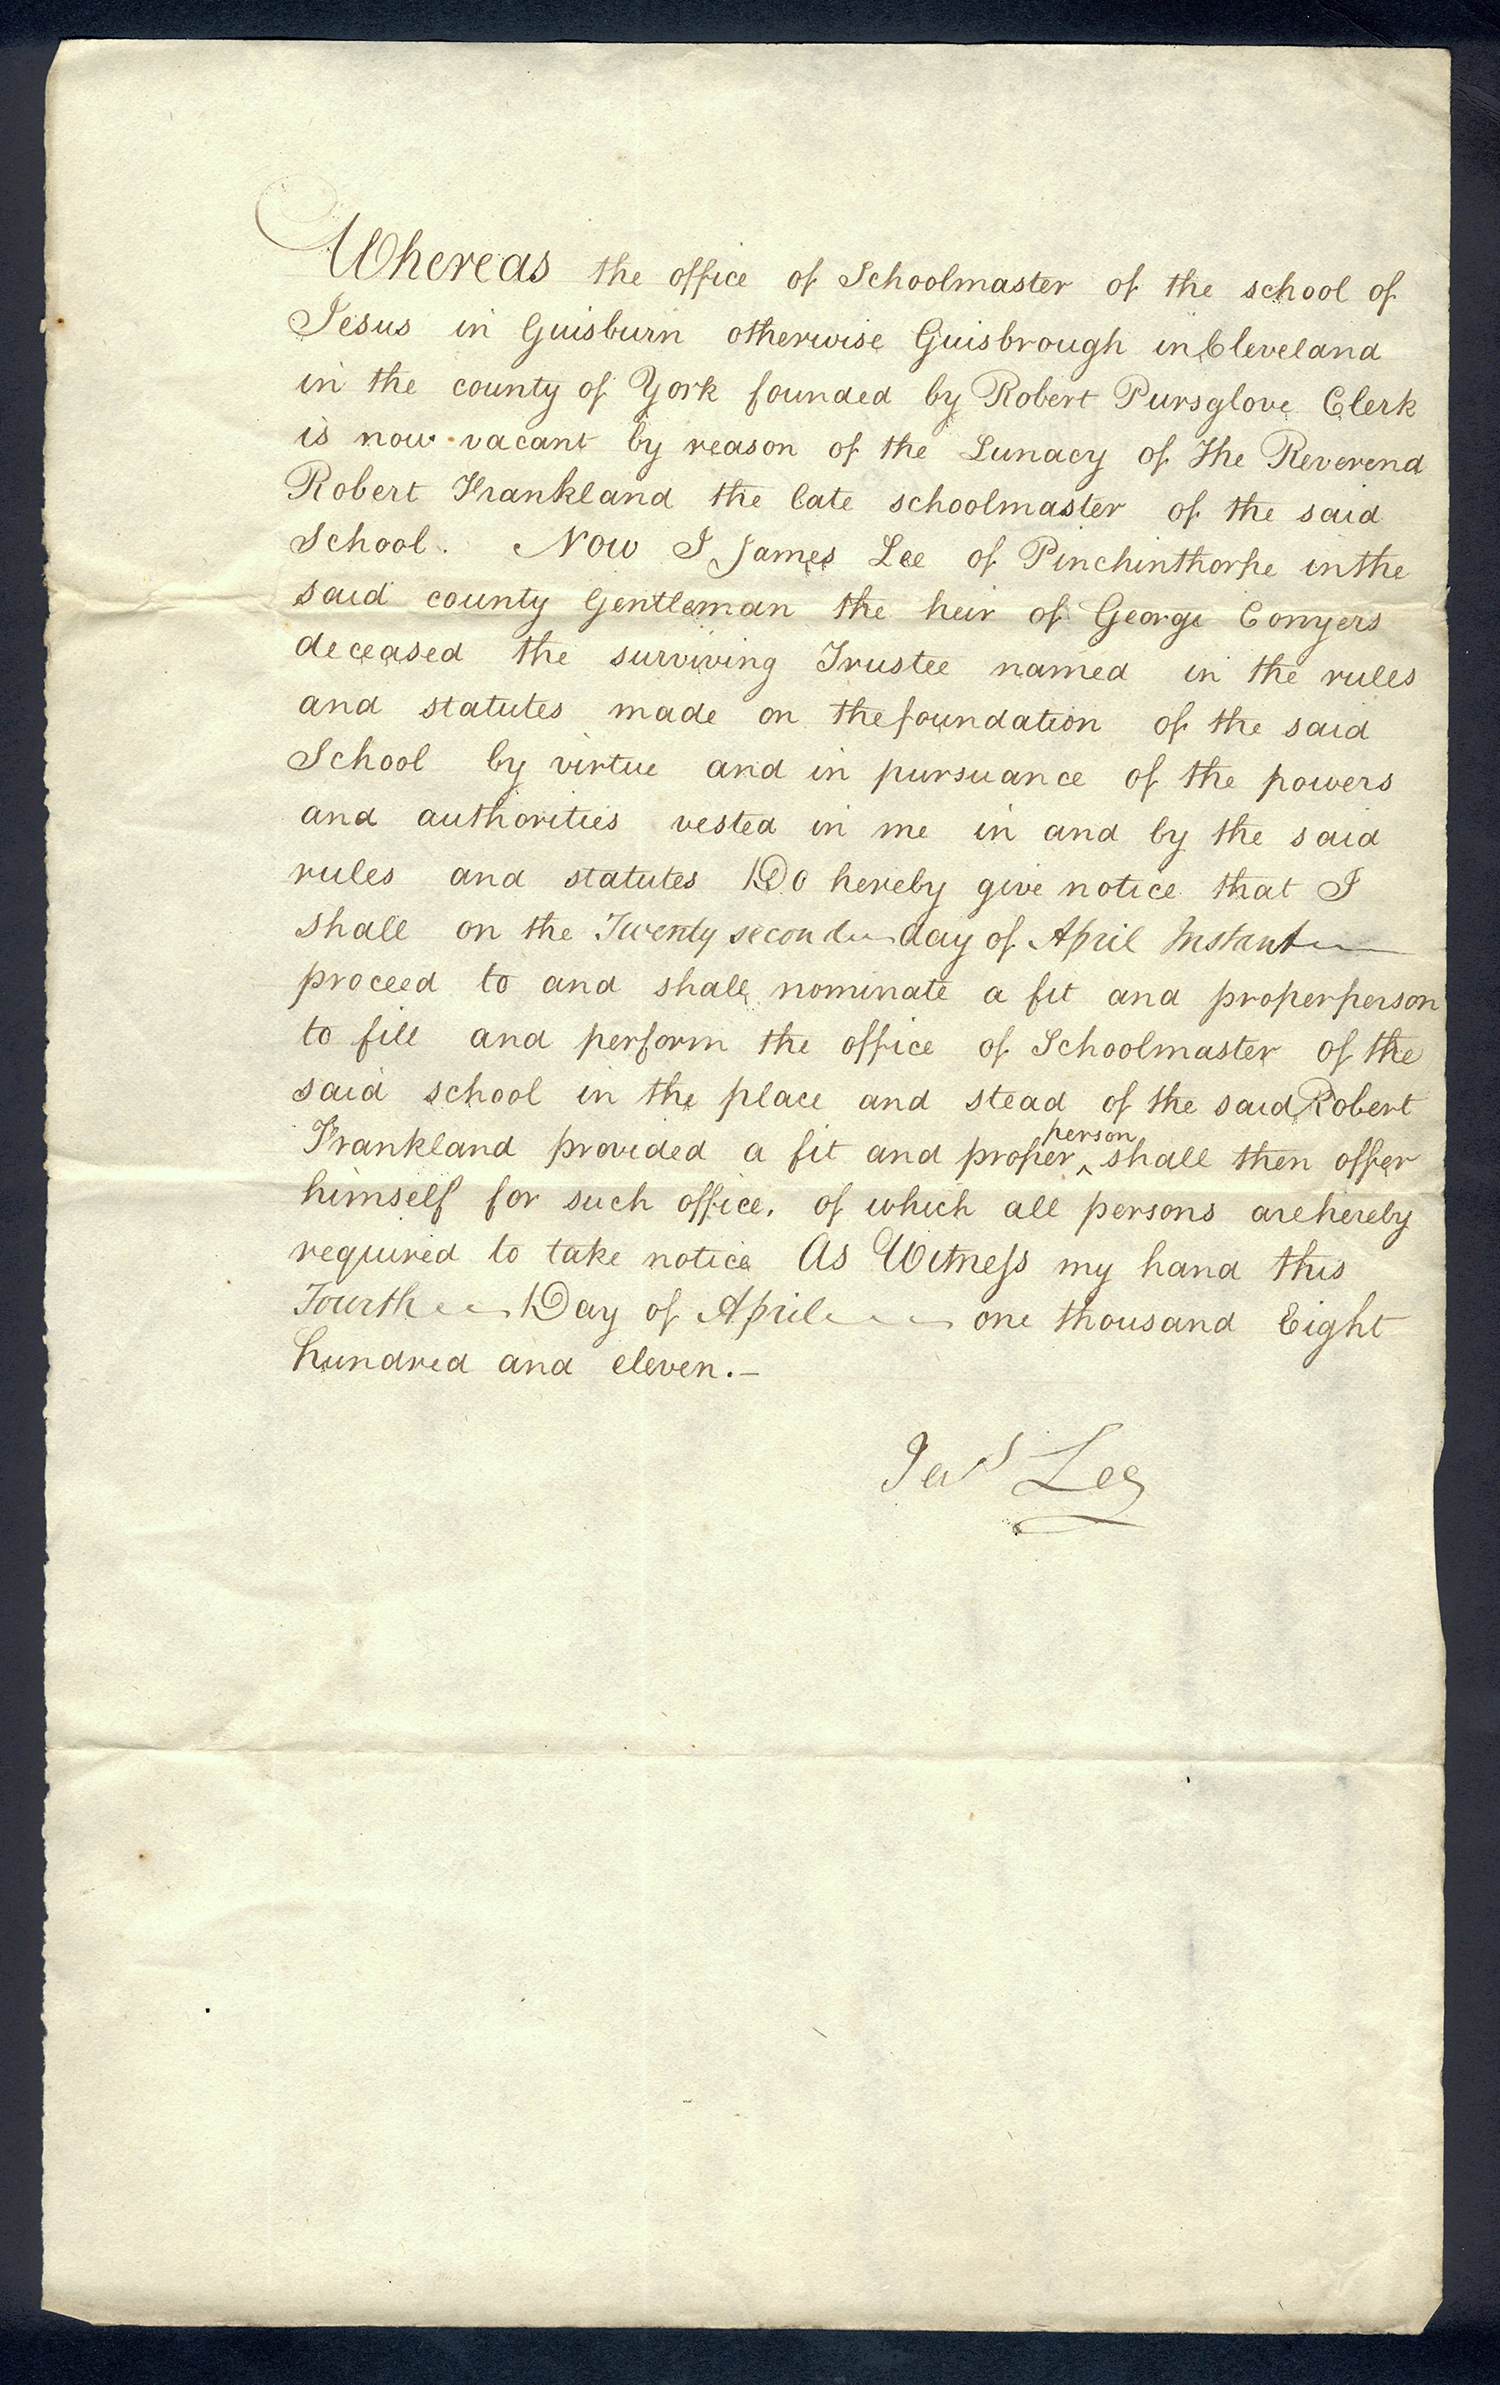 Whereas the office of Schoolmaster of the school of
Jesus in Guisburn otherwise Guisbrough in Cleveland
in the county of York founded by Robert Pursglove Clerk
is now vacant by reason of the Lunacy of The Reverend
Robert Frankland the late schoolmaster of the said
School. Now I James Lee of Pinchinthorpe in the
said county Gentleman the heir of George Conyers
deceased the surviving Trustee named in the rules
and statutes made on the foundation of the said
School by virtue and in pursuance of the powers
and authorities vested in me in and by the said
rules and statutes Do hereby give notice that I
shall on the Twenty second day of April Instant
proceed to and shall nominate a fit and proper person
to fill and perform the office of Schoolmaster of the
said school in the place and stead of the said Robert
Frankland provided a fit and proper ^person shall then offer
himself for such office. of which all persons are hereby
required to take notice As Witness my hand this
Fourth Day of April one thousand Eight
hundred and eleven.–
Jas Lee